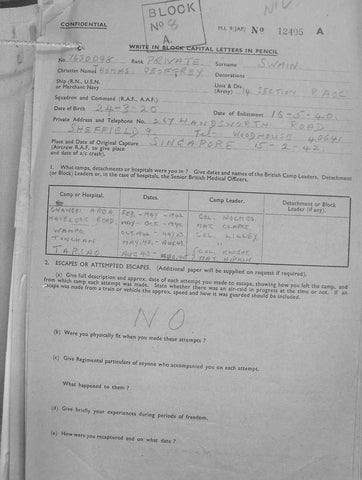 BLOCK
No 8
A.
CONFIDENTIAL
M.I. 9/JAP/ No 12495 A
WRITE IN BLOCK CAPITAL LETTERS IN PENCIL
No. 7630098 Rank PRIVATE Surname SWAIN
Christian Names THOMAS GEOFFREY Decorations
Ship (R.N., U.S.N. or Merchant Navy Unit & Div. (Army) SECTION RAOC
Squadron and Command (R.A.F., A.A.F.)
Date of Birth 24-3-20 Date of Enlistment 16-5-40
Private Address and Telephone No. 267 HANDSWORTH ROAD
SHEFFIELD 9. Tel. WOODHOUSE 40641
Place and Date of Original Capture SINGAPORE 15-2-42
(Aircrew R.A.F. to give place and date of a/c crash).
1. What camps, detachments or hospitals were you in? Give dates and names of the British Camp Leaders, Detachment (or Block) Leaders or, in the case of hospitals, the Senior British Medical Officers.
Camp or Hospital. Dates. Camp Leader. Detachment or Block Leader (if any).
CHANGI AREA FEB.-MAY-1942 COL. HOLMES
HAVELOCK ROAD MAY-OCT-1942 MAJ. CLARKE
WAMPO COL. LILLEY
TONCHAN MAY.43-AUG.43
TARSAO AUG.43 COL. KNIGHT
2. ESCAPES OR ATTEMPTED ESCAPES. (Additional paper will be supplied on request if required).
(a) Give full description and approx. date of each attempt you made to escape, showing how you left the camp, and from which camp each attempt was made. State whether there was an air-raid in progress at time or not. If an escape was made from a train or vehicle the approx. speed and how it was guarded should be included.
NO
(b) Were you physically fit when you made these attempts?
(c) Give Regimental particulars of anyone who accompanied you on each attempt.
What happened to them?
(d) Give briefly your experiences during periods of freedom.
(e) How were you recaptured and on what date?